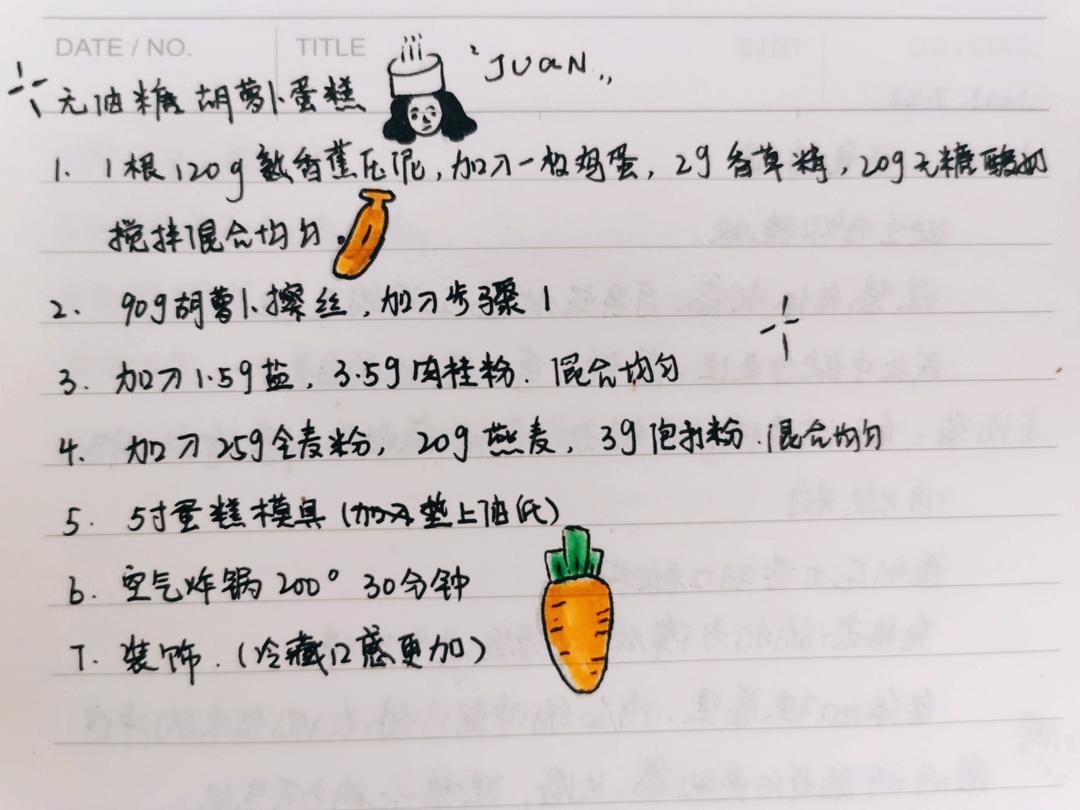 DATE / NO. TITLE
无油糖胡萝卜蛋糕 "JUAN"
1. 1根120g熟香蕉压泥,加入一枚鸡蛋,2g香草精,20g无糖酸奶
搅拌混合均匀.
2. 90g胡萝卜擦丝,加入步骤1
3. 加入1.5g盐,3.5g肉桂粉.混合均匀
4. 加入25g全麦粉,20g燕麦,3g泡打粉.混合均匀
5. 5寸蛋糕模具(加入垫上油纸)
6. 空气炸锅200° 30分钟
7. 装饰.(冷藏口感更加)